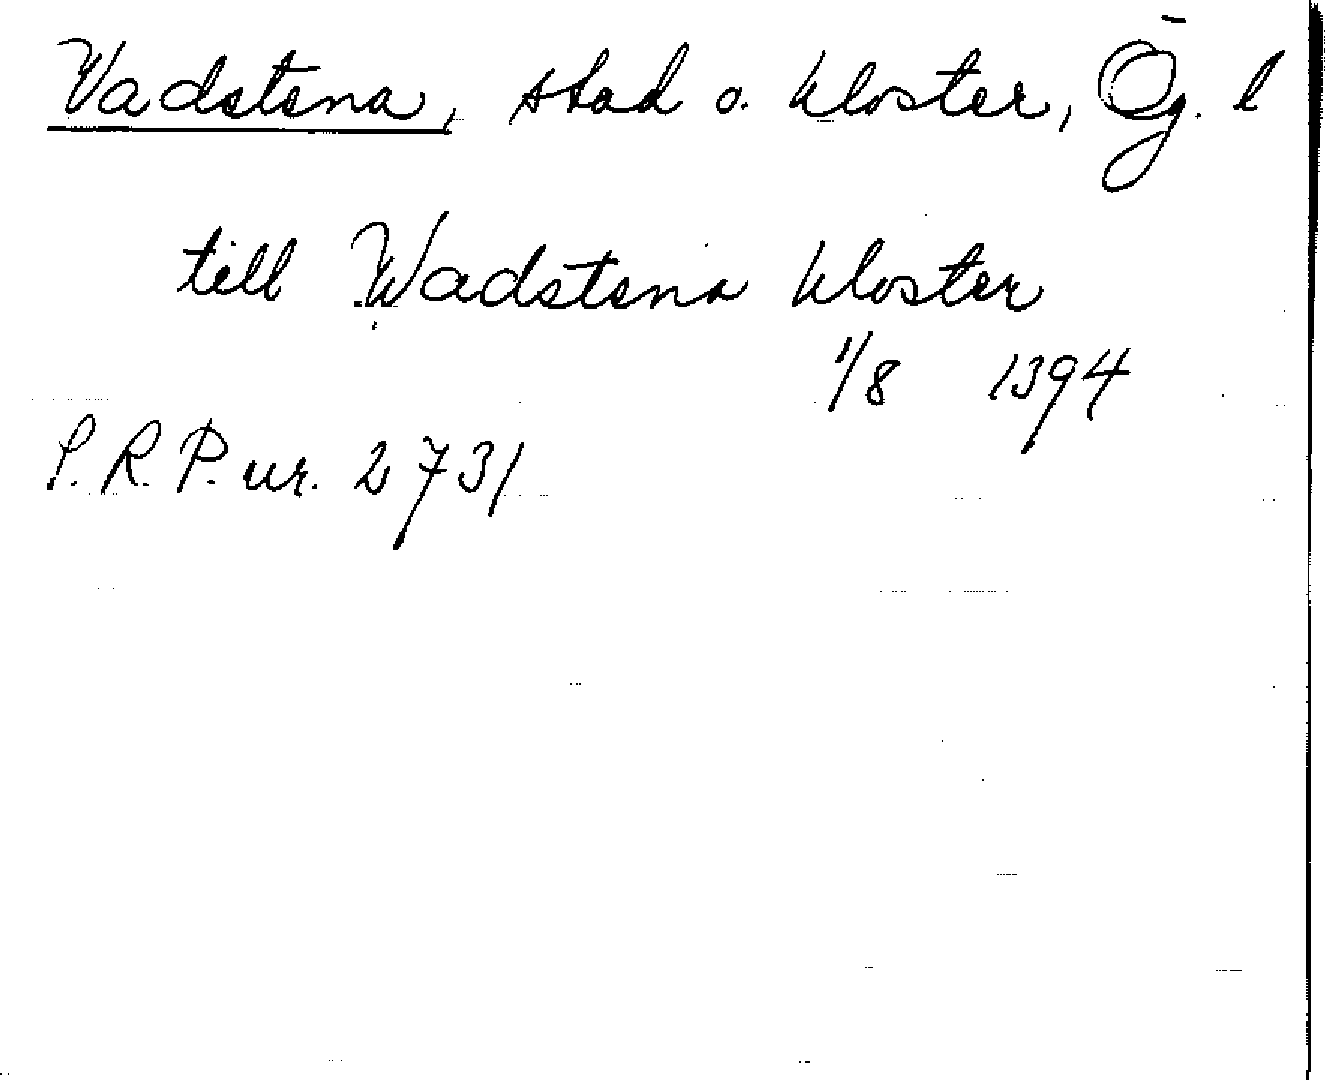 Vadstena, stad o. kloster, Ög. l
till Wadstena kloster
1/8 1394
S.R.P. nr. 2731